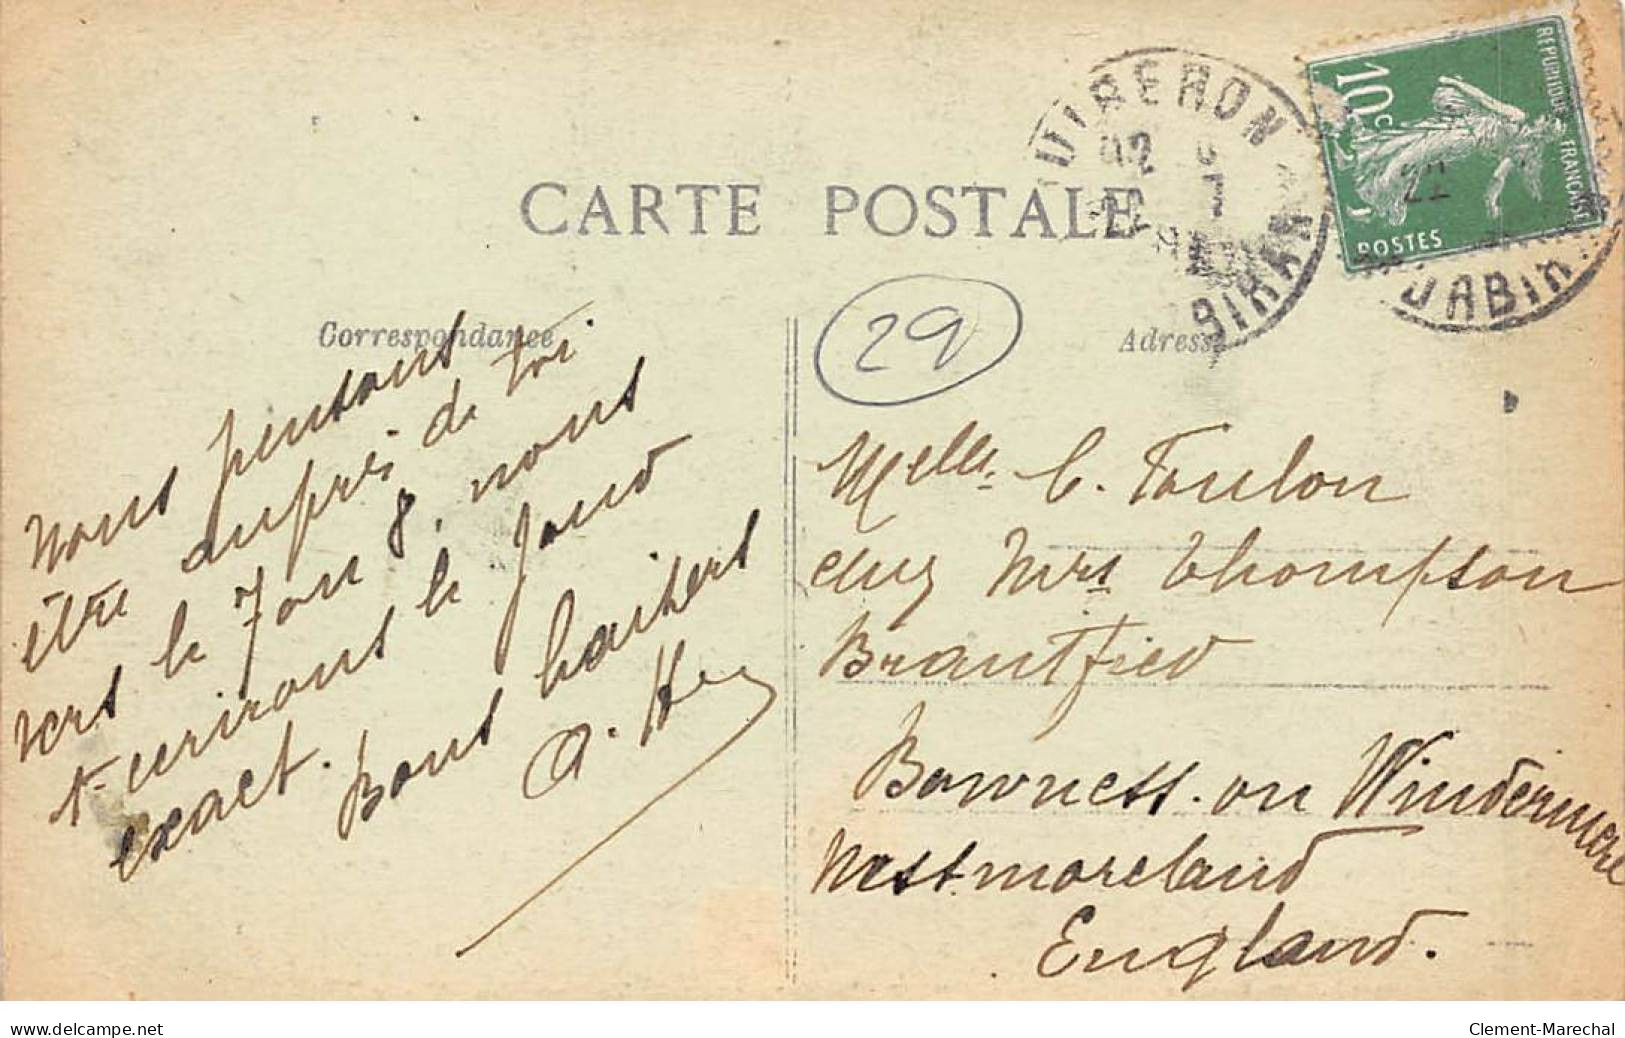 CARTE POSTALE
Correspondance
Adresse
29
QUIBERON
MORBIHAN
RÉPUBLIQUE FRANÇAISE
10c
POSTES
nous pensons
être auprès de toi
vers le 7 ou 8, nous
t'ecrirons le jour
exact.
Bons baisers
a. H
Melle C. Toulon
chez Mrs Thompson
Brantfied
Bowness. on Windermere
Westmoreland
England.
www.delcampe.net
Clement-Marechal